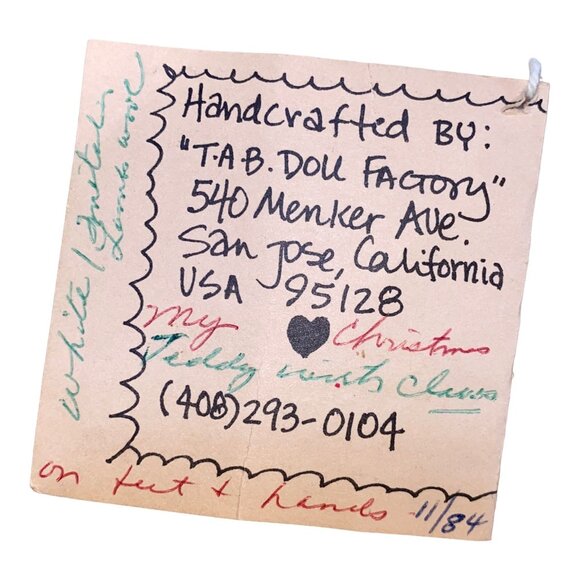 Handcrafted By:
"T.A.B. Doll Factory"
540 Menker Ave.
San Jose, California
USA 95128
My ♥ Christmas
Teddy with Claws
(408)293-0104
on feet & hands 11/84
White /
Lambs wool